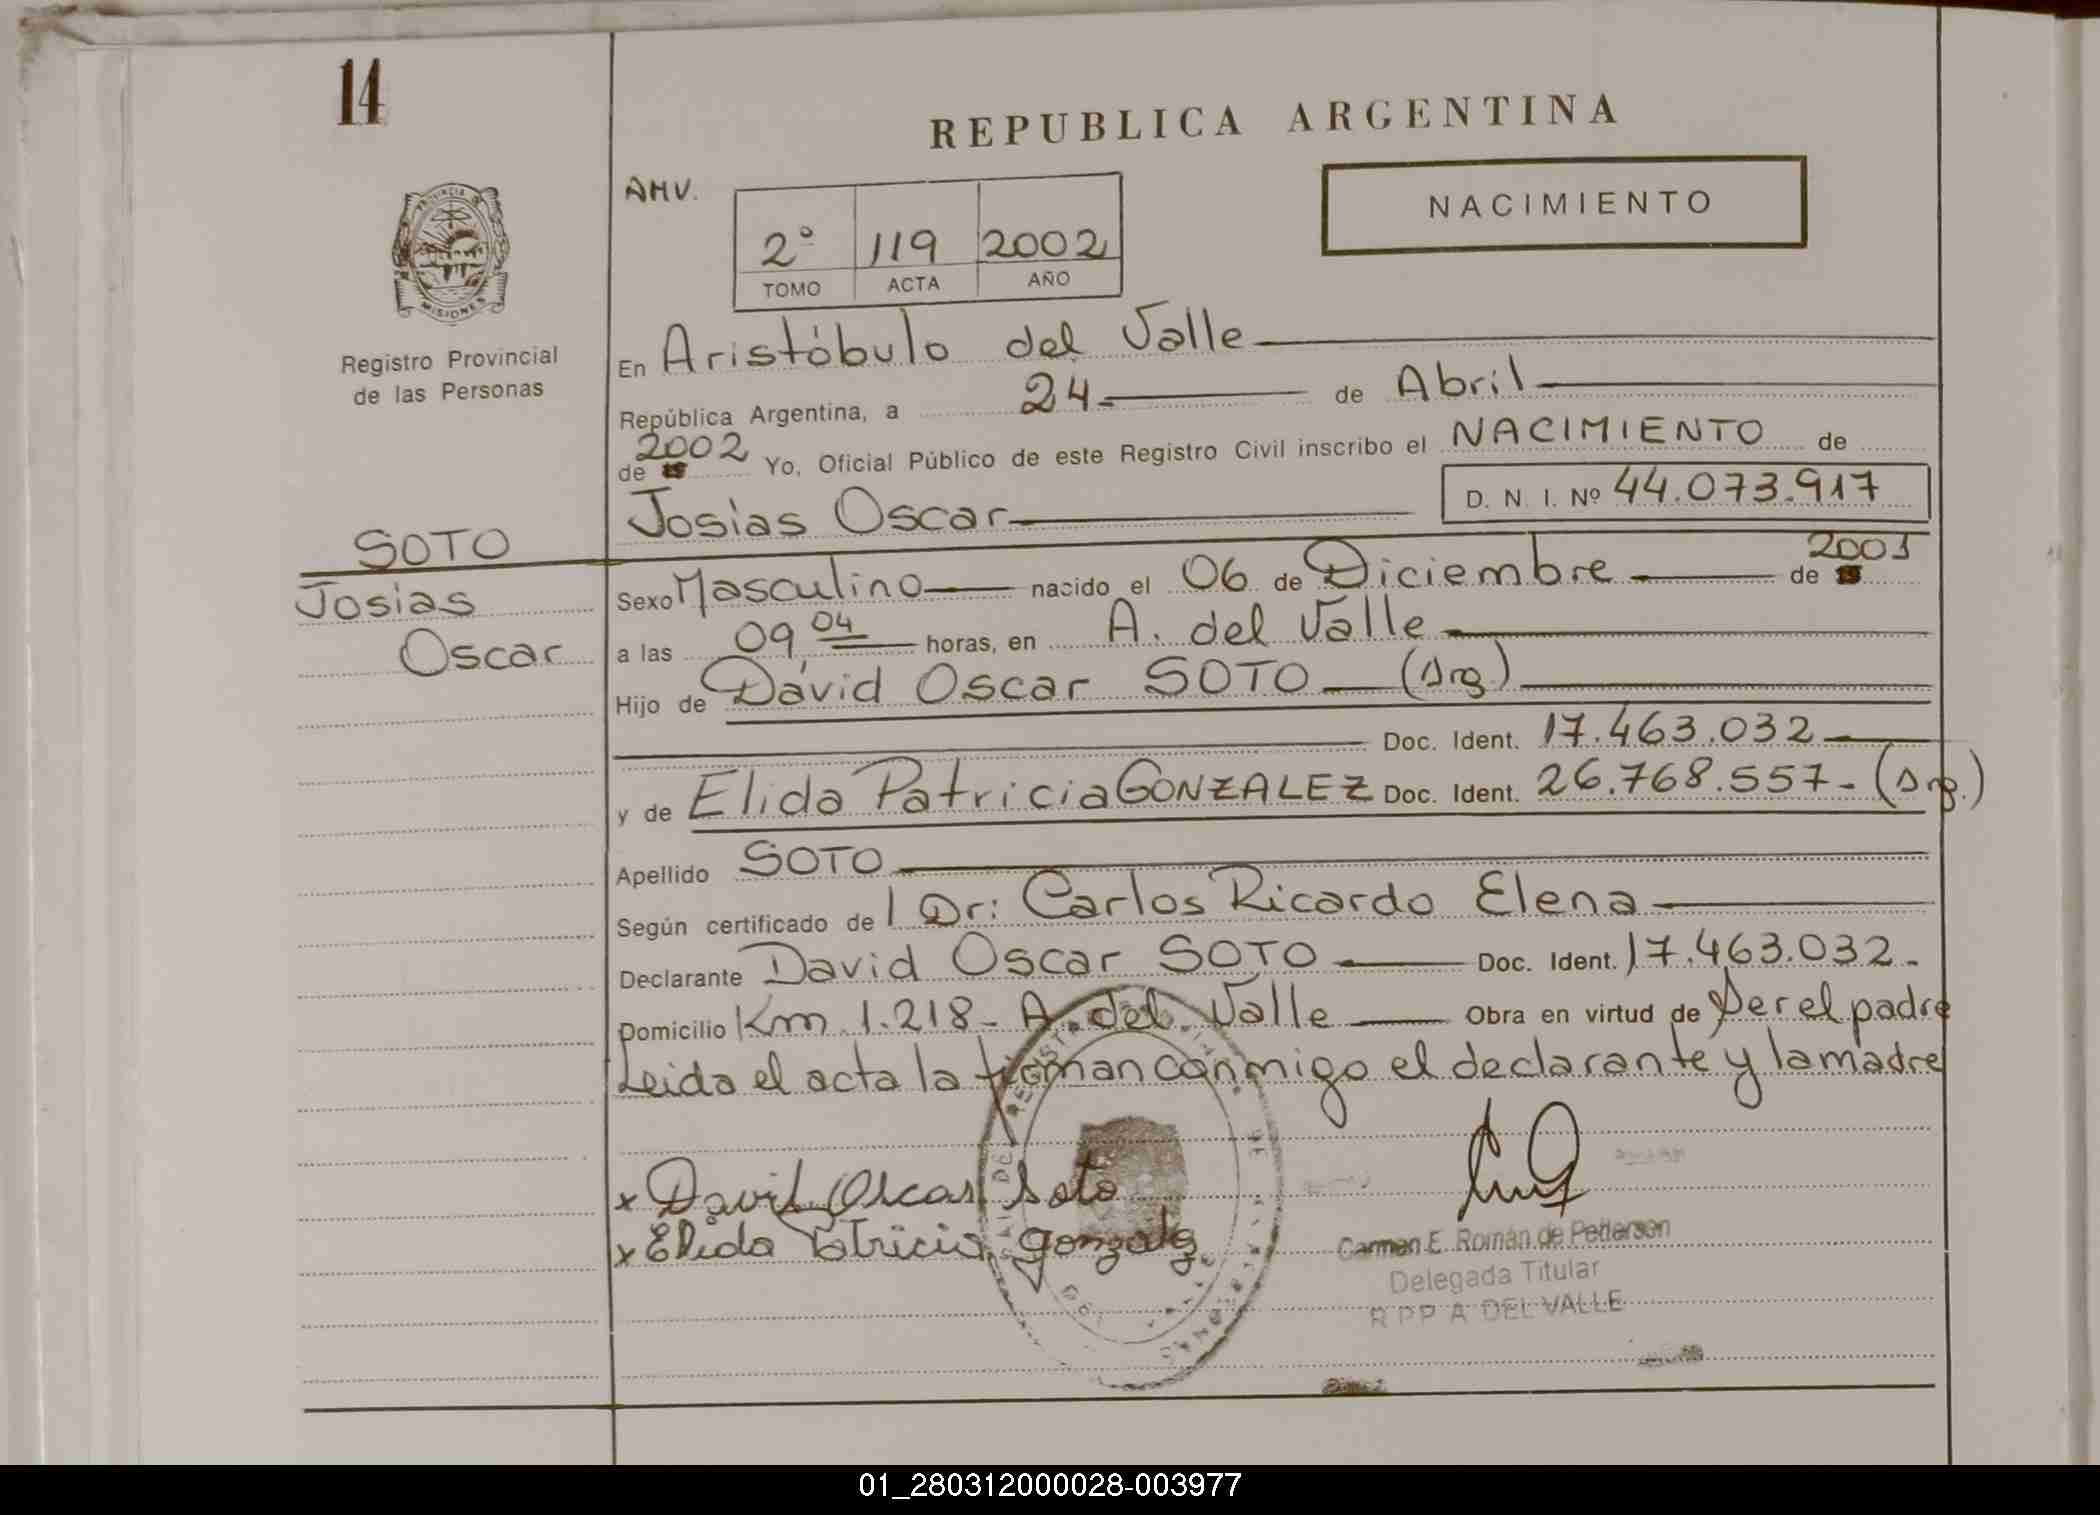 14
REPUBLICA ARGENTINA
AHV.
NACIMIENTO
2º 119 2002
TOMO ACTA AÑO
PROVINCIA
MISIONES
Registro Provincial
de las Personas
En Aristóbulo del Valle
República Argentina, a 24 de Abril
de 2002 Yo, Oficial Público de este Registro Civil inscribo el NACIMIENTO de
Josias Oscar D. N. I. Nº 44.073.917
SOTO
Josias
Oscar
Sexo Masculino nacido el 06 de Diciembre de 2001
a las 09,04 horas, en A. del Valle
Hijo de David Oscar SOTO (Arg.)
Doc. Ident. 17.463.032
y de Elida Patricia GONZALEZ Doc. Ident. 26.768.557- (Arg.)
Apellido SOTO
Según certificado de l Dr: Carlos Ricardo Elena
Declarante David Oscar SOTO Doc. Ident. 17.463.032.
Domicilio Km 1.218- A. del Valle Obra en virtud de Ser el padre
Leida el acta la firman conmigo el declarante y la madre
x David Oscar Soto
x Elida Patricia Gonzalez
Carmen E. Román de Pedersen
Delegada Titular
R P P A DEL VALLE
01_280312000028-003977